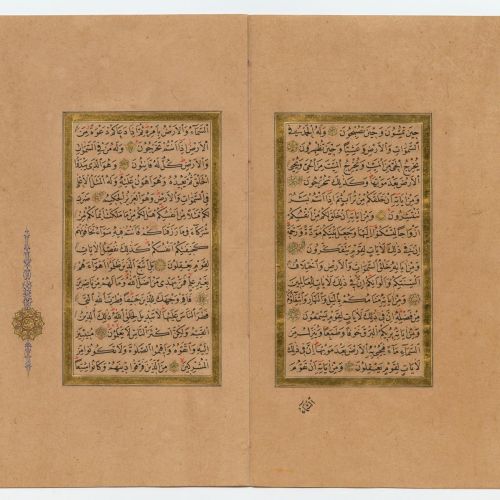 حِينَ تُمْسُونَ وَحِينَ تُصْبِحُونَ وَلَهُ الْحَمْدُ فِي
السَّمٰوَاتِ وَالْاَرْضِ وَعَشِيًّا وَحِينَ تُظْهِرُونَ
يُخْرِجُ الْحَيَّ مِنَ الْمَيِّتِ وَيُخْرِجُ الْمَيِّتَ مِنَ الْحَيِّ وَيُحْيِي
الْاَرْضَ بَعْدَ مَوْتِهَا وَكَذٰلِكَ تُخْرَجُونَ
وَمِنْ اٰيَاتِهِ اَنْ خَلَقَكُمْ مِنْ تُرَابٍ ثُمَّ اِذَا اَنْتُمْ بَشَرٌ
تَنْتَشِرُونَ وَمِنْ اٰيَاتِهِ اَنْ خَلَقَ لَكُمْ مِنْ اَنْفُسِكُمْ
اَزْوَاجًا لِتَسْكُنُوا اِلَيْهَا وَجَعَلَ بَيْنَكُمْ مَوَدَّةً وَرَحْمَةً
اِنَّ فِي ذٰلِكَ لَاٰيَاتٍ لِقَوْمٍ يَتَفَكَّرُونَ
وَمِنْ اٰيَاتِهِ خَلْقُ السَّمٰوَاتِ وَالْاَرْضِ وَاخْتِلَافُ
اَلْسِنَتِكُمْ وَاَلْوَانِكُمْ اِنَّ فِي ذٰلِكَ لَاٰيَاتٍ لِلْعَالِمِينَ
وَمِنْ اٰيَاتِهِ مَنَامُكُمْ بِالَّيْلِ وَالنَّهَارِ وَابْتِغَاؤُكُمْ
مِنْ فَضْلِهِ اِنَّ فِي ذٰلِكَ لَاٰيَاتٍ لِقَوْمٍ يَسْمَعُونَ
وَمِنْ اٰيَاتِهِ يُرِيكُمُ الْبَرْقَ خَوْفًا وَطَمَعًا وَيُنَزِّلُ مِنَ
السَّمَاءِ مَاءً فَيُحْيِي بِهِ الْاَرْضَ بَعْدَ مَوْتِهَا اِنَّ فِي ذٰلِكَ
لَاٰيَاتٍ لِقَوْمٍ يَعْقِلُونَ وَمِنْ اٰيَاتِهِ اَنْ تَقُومَ
السماء
السَّمَاءُ وَالْاَرْضُ بِاَمْرِهِ ثُمَّ اِذَا دَعَاكُمْ دَعْوَةً مِنَ
الْاَرْضِ اِذَا اَنْتُمْ تَخْرُجُونَ وَلَهُ مَنْ فِي السَّمٰوَاتِ
وَالْاَرْضِ كُلٌّ لَهُ قَانِتُونَ وَهُوَ الَّذِي يَبْدَؤُا
الْخَلْقَ ثُمَّ يُعِيدُهُ وَهُوَ اَهْوَنُ عَلَيْهِ وَلَهُ الْمَثَلُ الْاَعْلٰى
فِي السَّمٰوَاتِ وَالْاَرْضِ وَهُوَ الْعَزِيزُ الْحَكِيمُ ضَرَبَ
لَكُمْ مَثَلًا مِنْ اَنْفُسِكُمْ هَلْ لَكُمْ مِنْ مَا مَلَكَتْ اَيْمَانُكُمْ مِنْ
شُرَكَاءَ فِي مَا رَزَقْنَاكُمْ فَاَنْتُمْ فِيهِ سَوَاءٌ تَخَافُونَهُمْ
كَخِيفَتِكُمْ اَنْفُسَكُمْ كَذٰلِكَ نُفَصِّلُ الْاٰيَاتِ
لِقَوْمٍ يَعْقِلُونَ بَلِ اتَّبَعَ الَّذِينَ ظَلَمُوا اَهْوَاءَهُمْ
بِغَيْرِ عِلْمٍ فَمَنْ يَهْدِي مَنْ اَضَلَّ اللّٰهُ وَمَا لَهُمْ مِنْ نَاصِرِينَ
فَاَقِمْ وَجْهَكَ لِلدِّينِ حَنِيفًا فِطْرَتَ اللّٰهِ الَّتِي
فَطَرَ النَّاسَ عَلَيْهَا لَا تَبْدِيلَ لِخَلْقِ اللّٰهِ ذٰلِكَ الدِّينُ
الْقَيِّمُ وَلٰكِنَّ اَكْثَرَ النَّاسِ لَا يَعْلَمُونَ مُنِيبِينَ
اِلَيْهِ وَاتَّقُوهُ وَاَقِيمُوا الصَّلٰوةَ وَلَا تَكُونُوا مِنَ
الْمُشْرِكِينَ مِنَ الَّذِينَ فَرَّقُوا دِينَهُمْ وَكَانُوا شِيَعًا